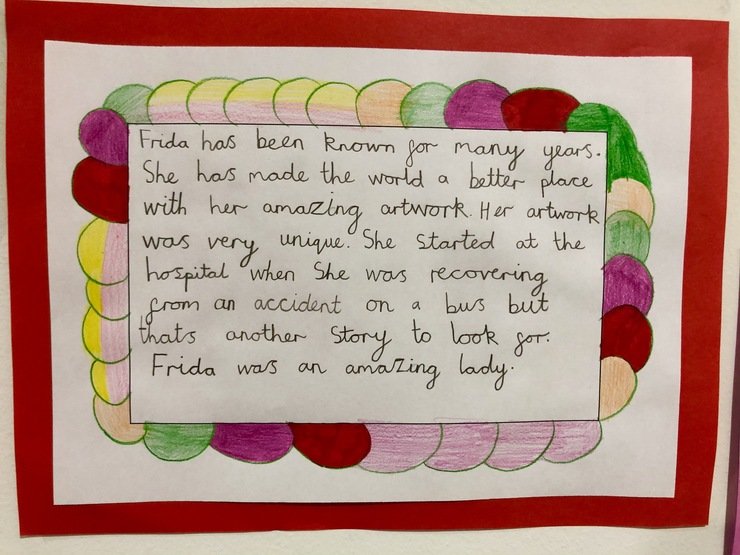 Frida has been known for many years.
She has made the world a better place
with her amazing artwork. Her artwork
was very unique. She started at the
hospital when She was recovering
from an accident on a bus but
thats another story to look for.
Frida was an amazing lady.